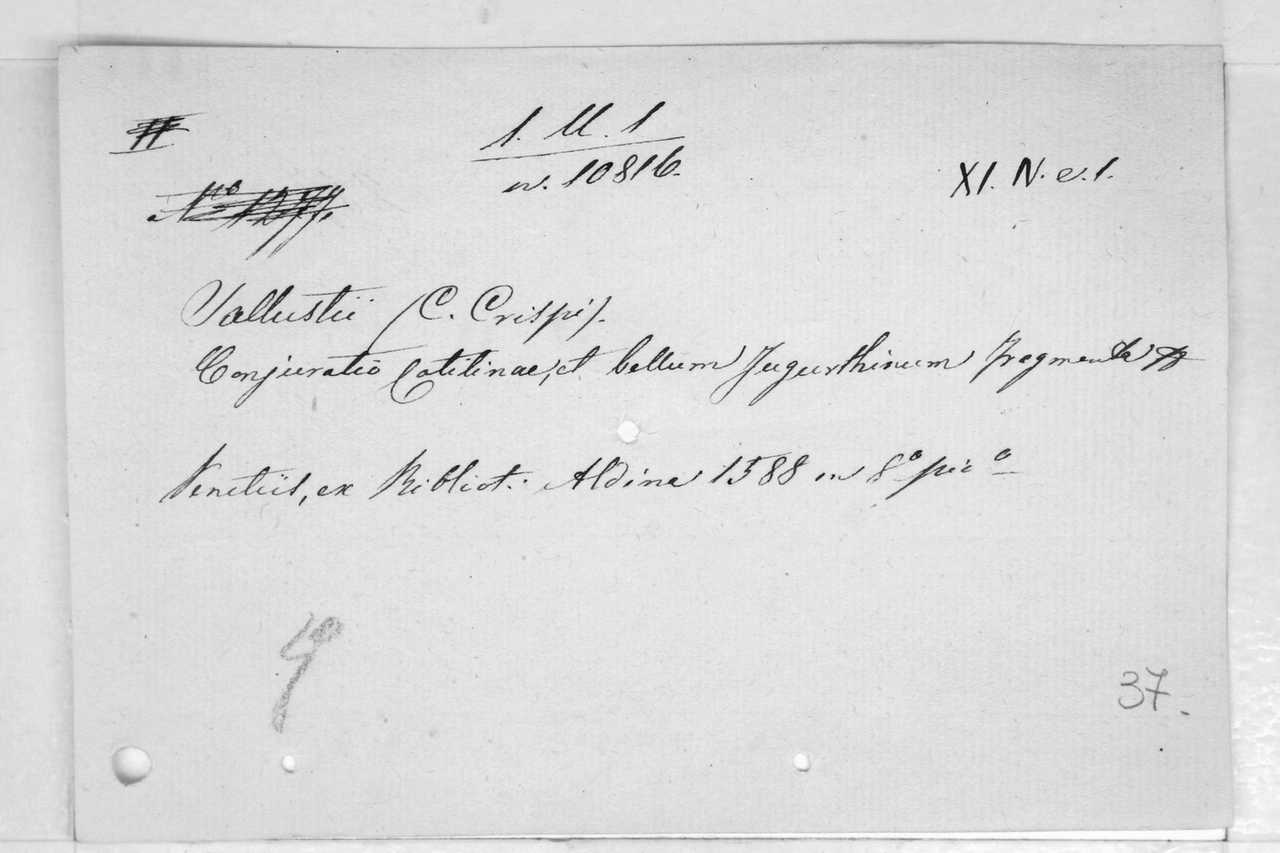 1. U. 1
n. 10816.
XI. N. e. 1.
Nº
Sallustii (C. Crispi).
Conjuratio Catilinae, et bellum Jugurthinum fragmenta
Venetiis, ex Bibliot. Aldina 1588 in 8º picº
37.